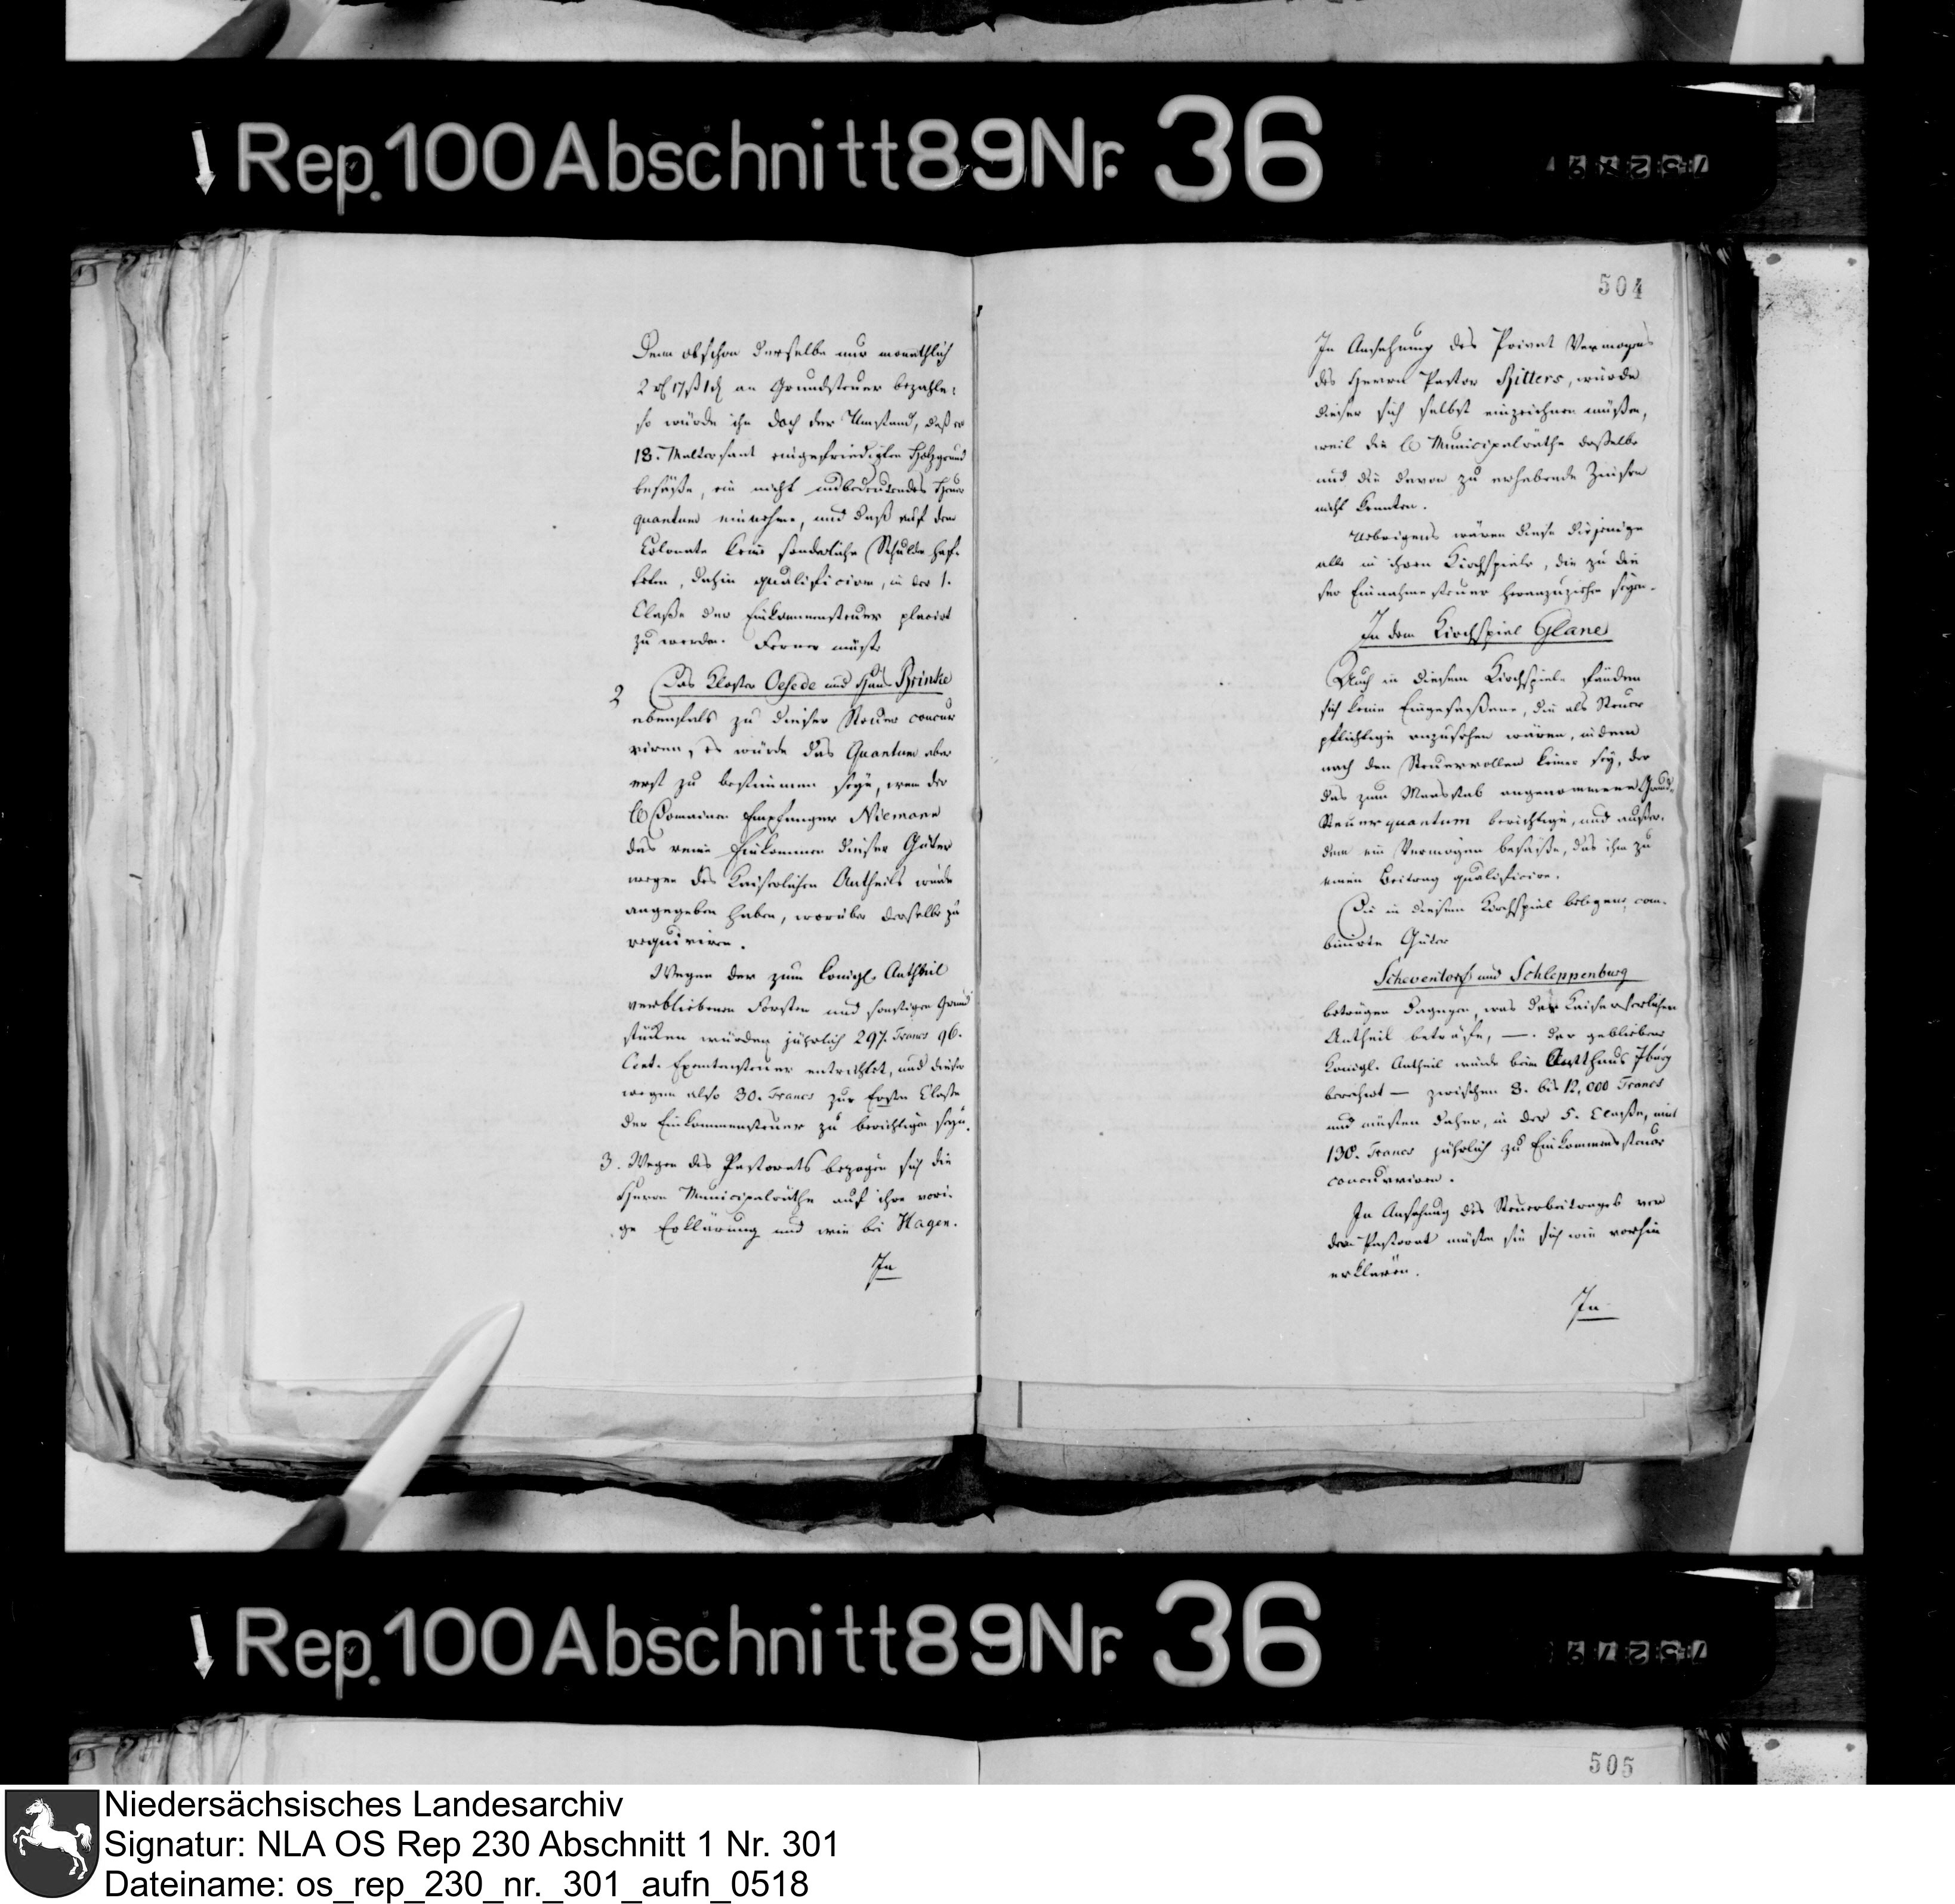 Rep. 100 Abschnitt 89 Nr. 36
504
Denn obschon derselbe nur monathlich
2 rl 17 ß 1 d an Grundsteuer bezahle;
so würde ihn doch der Umstand, daß er
18. Maltersaat eingefriedigten Holzgrund
besäße, ein nicht unbedeutendes Heuer
quantum einnehme, und daß auf dem
Colonate keine sonderliche Schulde haf-
teten, dahin qualificiren, in der 1.
Claße der Einkommensteuer placirt
zu werden. Ferner müßte
2 Das Kloster Oesede und Haus Brinke
ebenfals zu dieser Steuer concur
riren, es würde das Quantum aber
erst zu bestimmen seyn, wenn der
Domainen Empfänger Niemann
das reine Einkommen dieser Güter
wegen des Kaiserlichen Antheils würde
angegeben haben, worüber derselbe zu
requiriren.
Wegen der zum Königl. Antheil
verbliebenen Forsten und sonstigen Grund
stücken würden jährlich 297. Francs 96.
Cent. Exemtensteuer entrichtet, und dieser
wegen also 30. Francs zur Ersten Claße
der Einkommensteuer zu berichtigen seyn.
3. Wegen des Pastorats bezögen sich die
Herrn Municipalräthe auf ihre vori-
ge Erklärung und wie bei Hagen.
In
In Ansehung des Privat Vermögens
des Herrn Pastor Hillers, würde
dieser sich selbst einzeichnen müßen,
weil die Municipalräthe daßelbe
und die davon zu erhebende Zinsen
nicht kennten.
Uebrigens wären diese diejenige
alle in ihren Kirchspiele, die zu die
ser Einnahmesteuer heranzuziehen seyen.
In dem Kirchspiel Glane
Auch in diesem Kirchspiele fänden
sich keine Eingeseßene, die als Steuer
pflichtige anzusehen wären, indem
nach den Steuerrollen keiner sey, der
das zum Maasstab angenommene Grund-
Steuerquantum berichtige, und außer-
dem ein Vermögen besäße, das ihn zu
einen Beitrag qualificire.
Die in diesem Kirchspiel belegene, com-
binirte Güter
Scheventorf und Schleppenburg
betrügen dagegen, was der Kaiserlichen
Antheil beträfe, —. der gebliebene
Königl. Antheil würde beim Amthaus Iburg
berechnet — zwischen 8. bis 12,000 Francs
und müßten daher, in der 5. Claße, mit
130. Francs jährlich zu Einkommensteuer
concurriren.
In Ansehung des Steuerbeitrages von
dem Pastorat müßten sie sich wie vorhin
erklären.
In
Rep. 100 Abschnitt 89 Nr. 36
505
Niedersächsisches Landesarchiv
Signatur: NLA OS Rep 230 Abschnitt 1 Nr. 301
Dateiname: os_rep_230_nr._301_aufn_0518